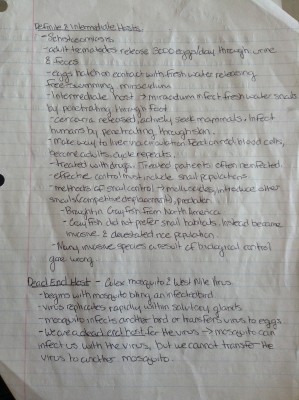 Definite & Intermediate Hosts
- Schistosomiasis
- adult trematodes release 3000 eggs/day through urine
& feces
- eggs hatch on contact with fresh water releasing
free swimming miracidium
- Intermediate host → miracidium infect fresh water snails
by penetrating through foot
- cercaria released, actively seek mammals, infect
humans by penetrating through skin.
- Make way to liver via circulation, feed on red blood cells,
become adults, cycle repeats.
- Treated with drugs. Treated patients often reinfected
- effective control must include snail populations
- methods of snail control → molluscicides, introduce other
snails (competitive displacement), predator
- Brought in Crayfish from North America
- Crayfish did not prefer snail habitats. Instead became
invasive & devastated rice population
- Many invasive species a result of biological control
gone wrong.
Dead End Host - Culex mosquito & West Nile Virus
- begins with mosquito biting an infected bird
- virus replicates rapidly within salivary glands
- mosquito infects another bird or transfers virus to eggs
- We are a dead end host for the virus → mosquito can
infect us with the virus, but we cannot transfer the
virus to another mosquito.